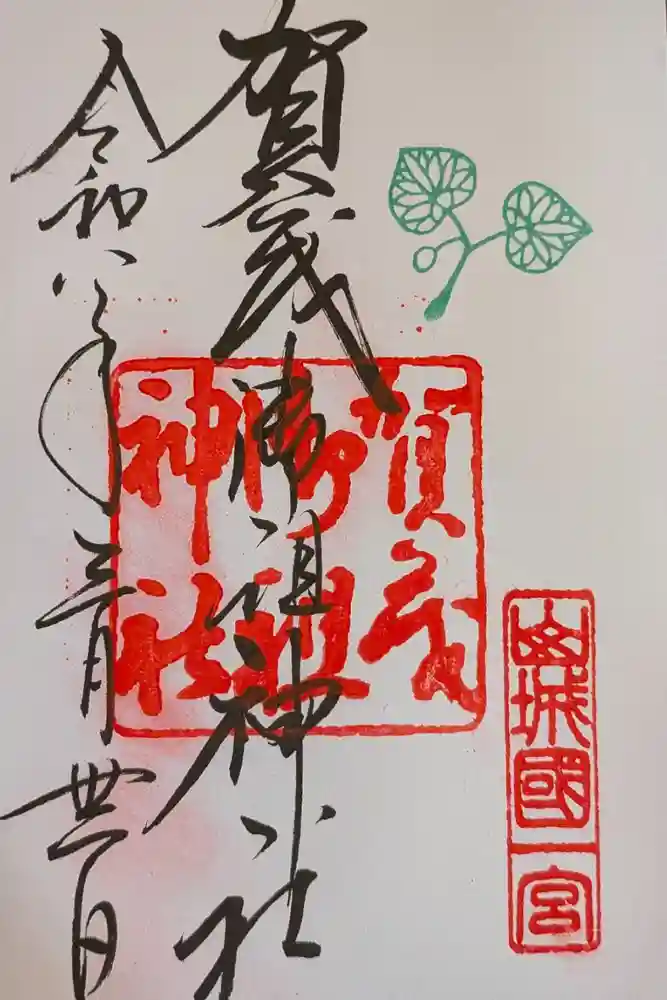 山城國一宮
賀茂
御祖
神社
賀茂御祖神社
令和八年三月日